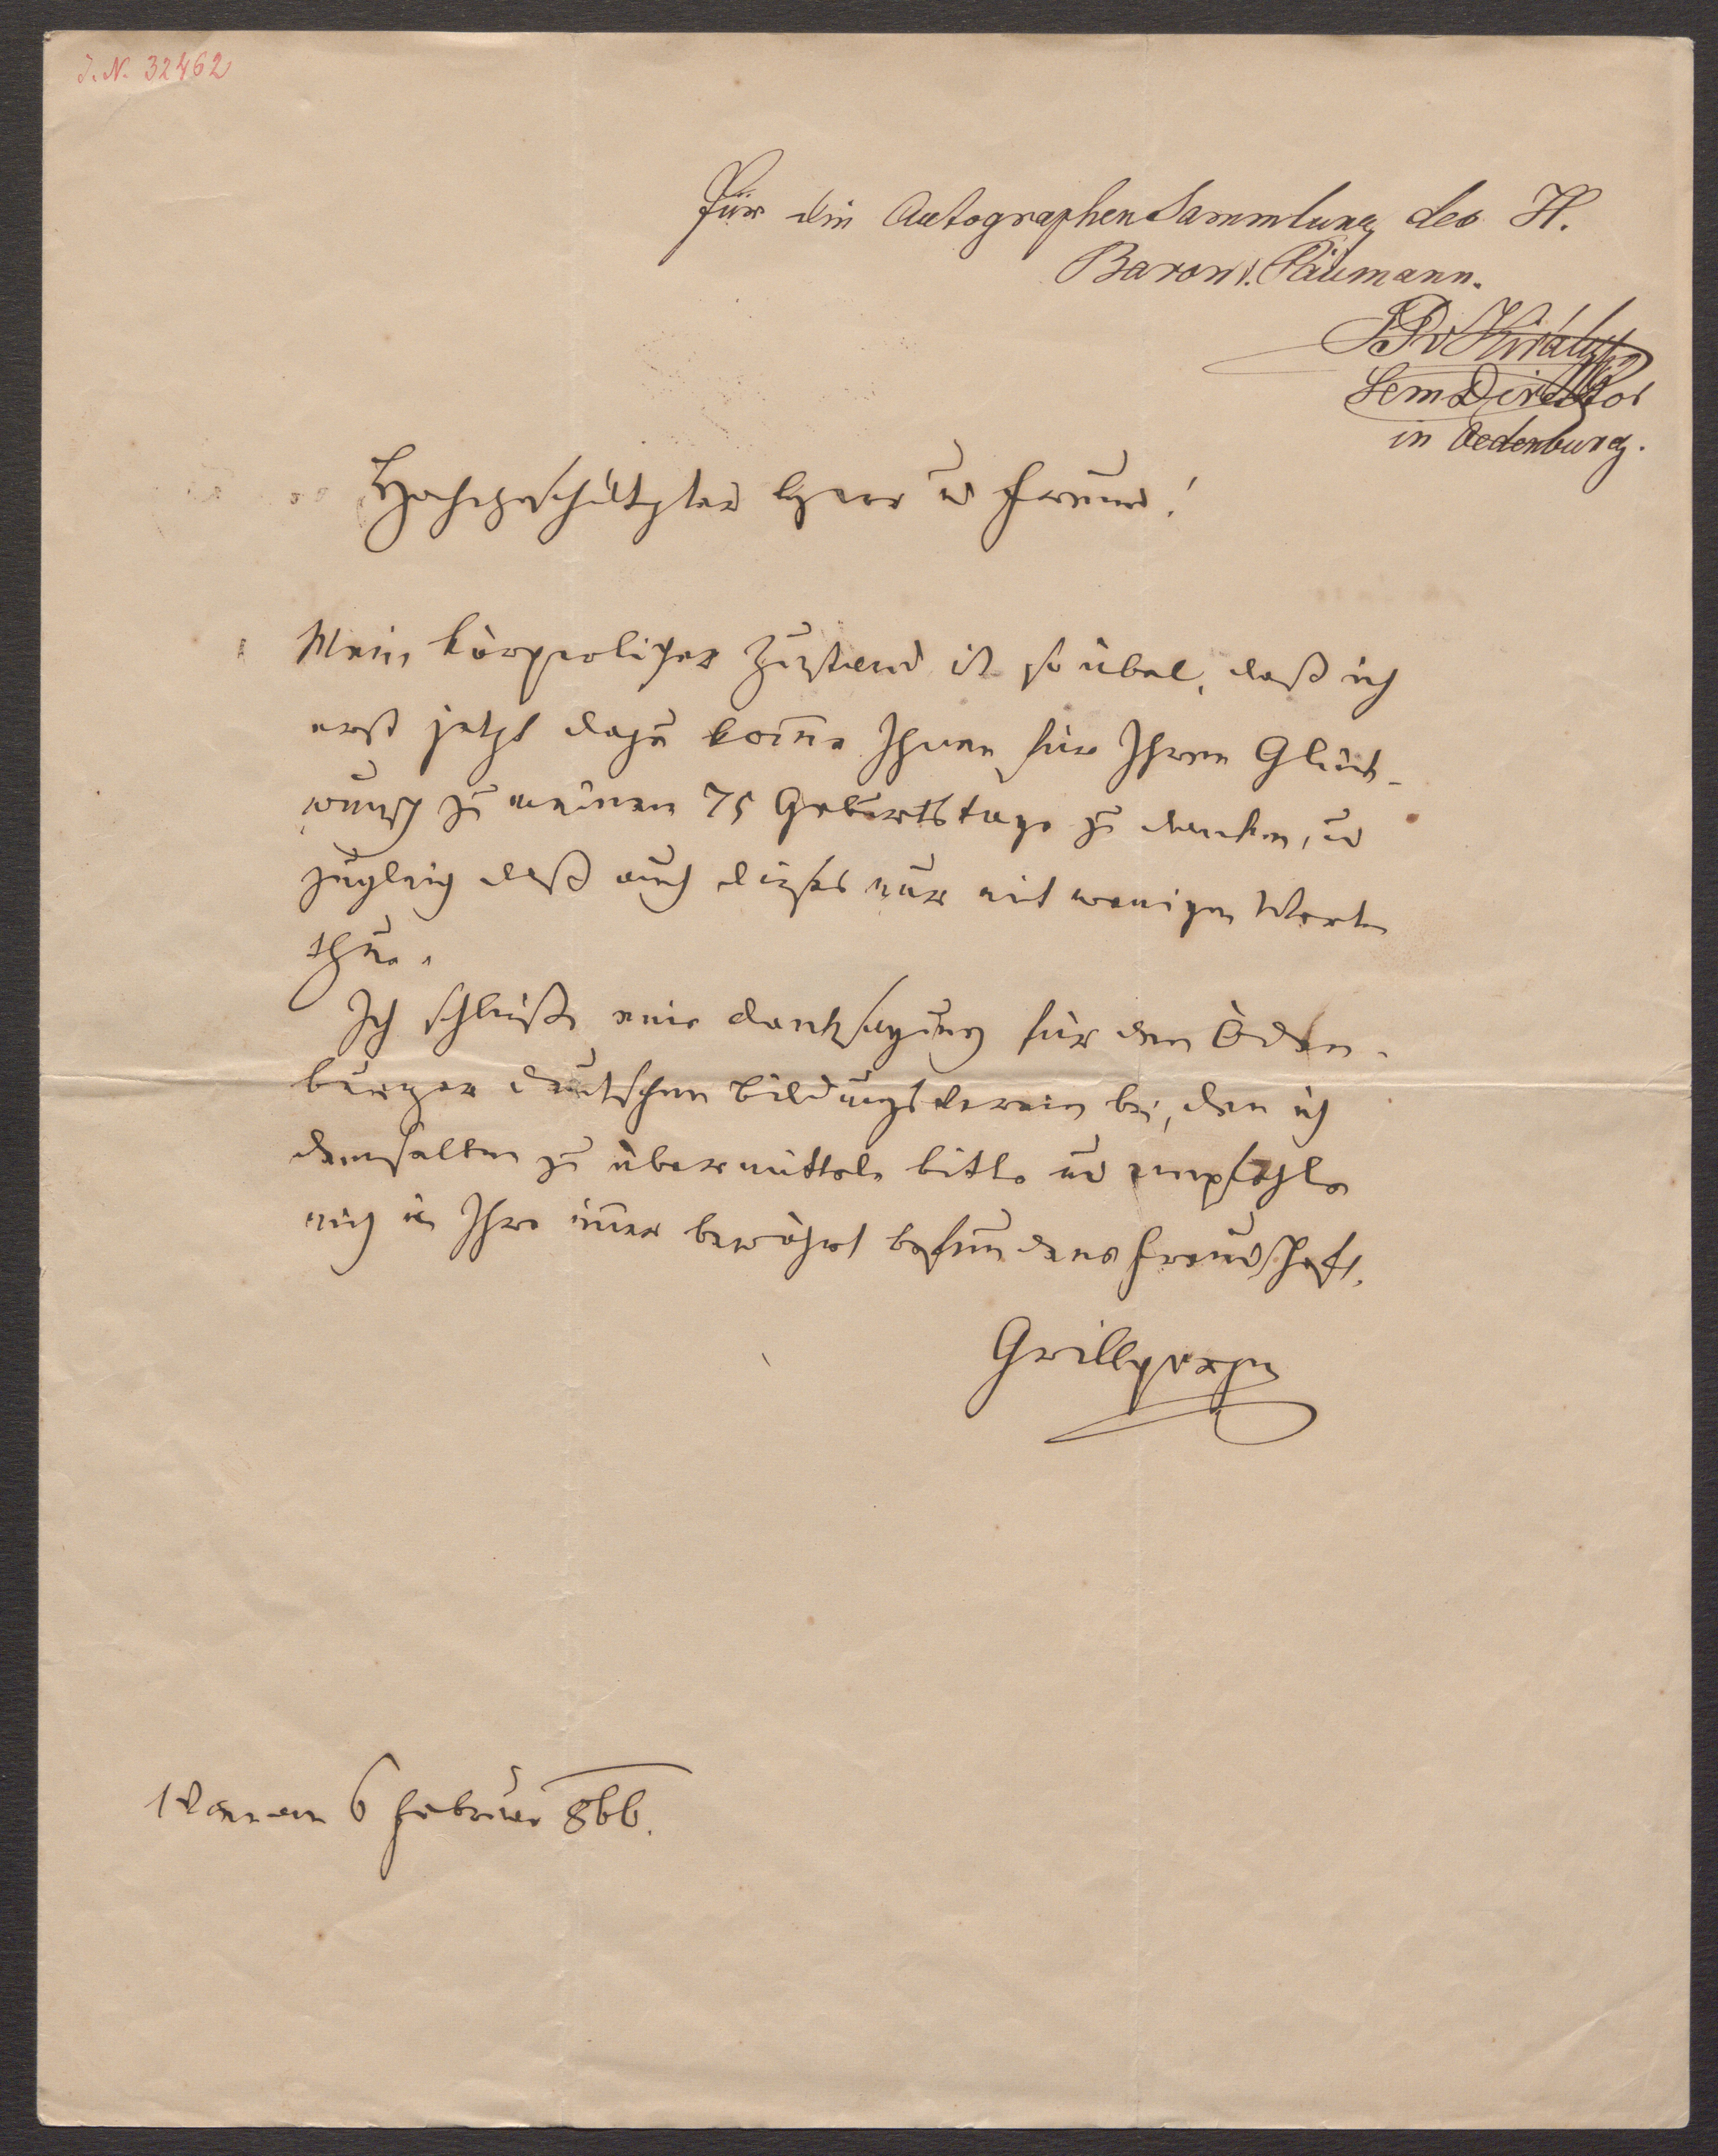 J. N. 32462
für die Autographen Sammlung des H.
Baron v. Päumann.
JP v Király
Sem Director
in Oedenburg.
Hochgeschätzter Herr u Freund!
Mein körperlicher Zustand ist so übel, daß ich
erst jetzt dazu kom̅e Ihnen für Ihren Glück-
wunsch zu meinem 75 Geburtstage zu danken, u
zugleich daß auch dieses nur mit wenigen Worten
thue.
Ich schließe eine Danksagung für den Öden-
burger deutschen Bildungsverein bei, den ich
demselben zu übermitteln bitte und empfehle
mich in Ihre im̅er bewährt befundene Freundschaft.
Grillparzer
Wien am 6 Februar 866.